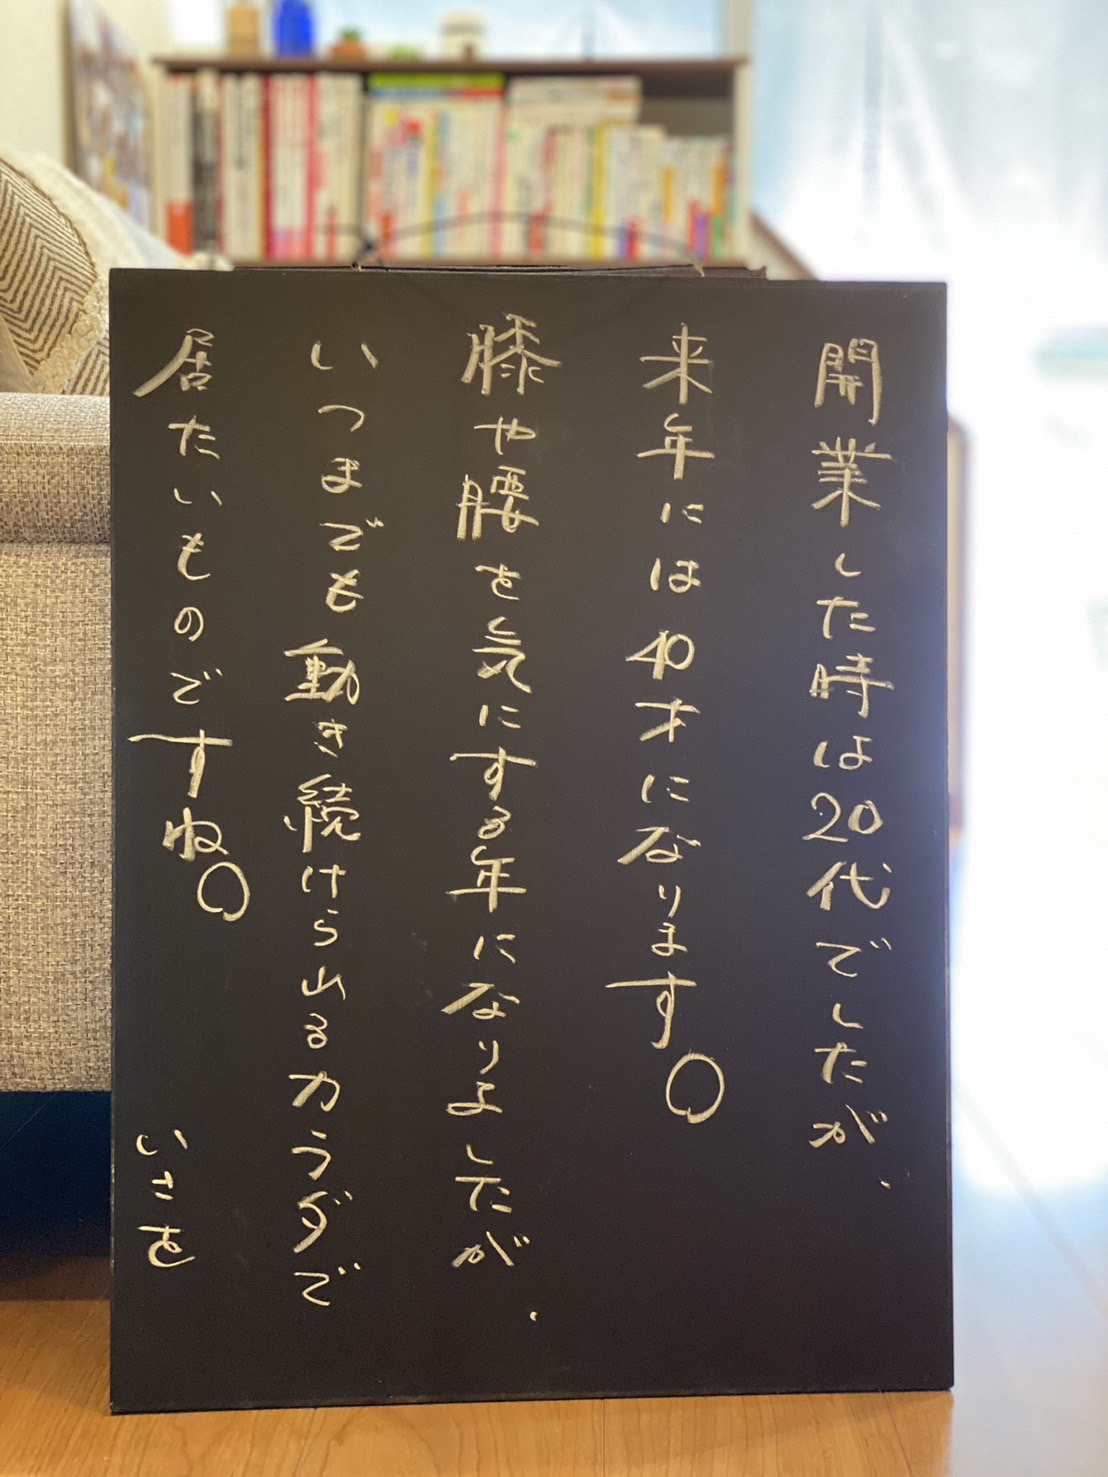 開業した時は20代でしたが、
来年には40才になります。
膝や腰を気にする年になりましたが、
いつまでも動き続けられるカラダで
居たいものですね。
いさを